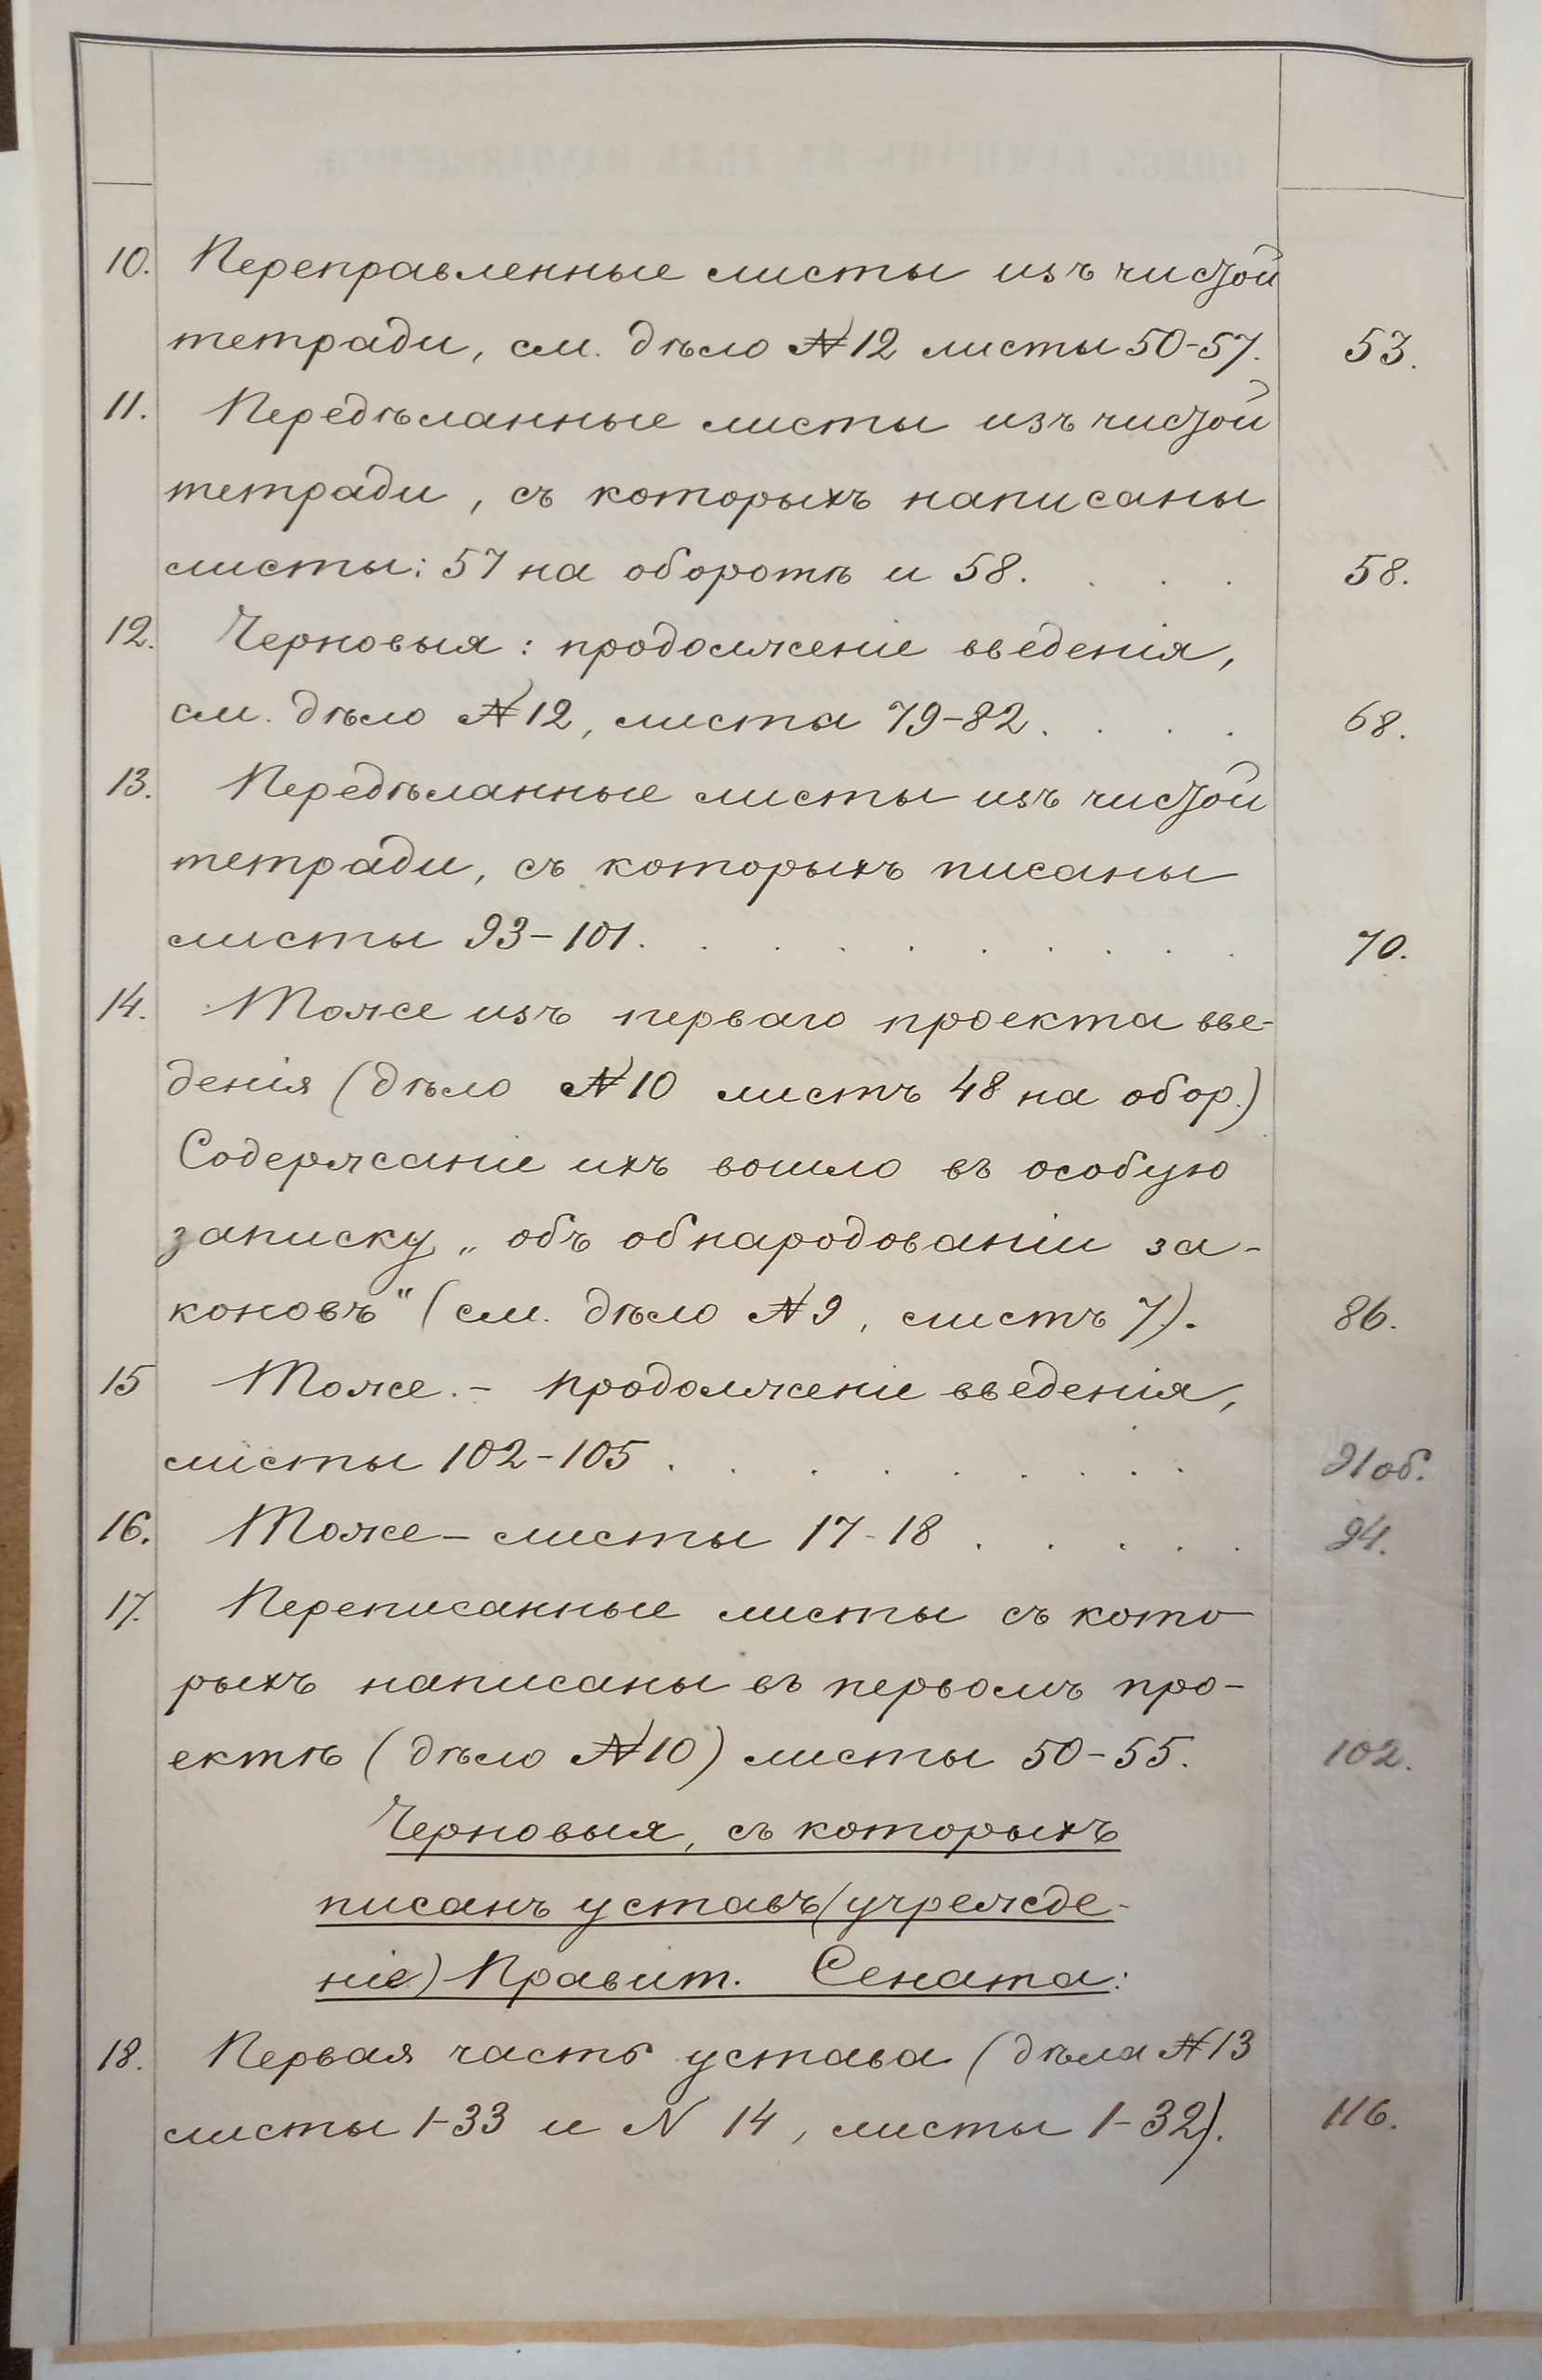 10. Переправленные листы изъ чистой
тетради, см. дѣло №12 листы 50-57. 53.
11. Передѣланные листы изъ чистой
тетради, съ которыхъ написаны
листы: 57 на оборотѣ и 58. . . . 58.
12. Черновыя: продолженіе введенія,
см. дѣло №12, листа 79-82. . . . 68.
13. Передѣланные листы изъ чистой
тетради, съ которыхъ писаны
листы 93-101. . . . . . . . . 70.
14. Тоже изъ перваго проекта вве-
денія (дѣло №10 листъ 48 на обор.)
Содержаніе ихъ вошло въ особую
записку „объ обнародованіи за-
коновъ“ (см. дѣло №9, листъ 7). 86.
15 Тоже. - продолженіе введенія,
листы 102-105 . . . . . . . . 91 об.
16. Тоже - листы 17-18 . . . . . 94.
17. Переписанные листы съ кото
рыхъ написаны въ первомъ про-
ектѣ (дѣло №10) листы 50-55. 102.
Черновыя, съ которыхъ
писанъ уставъ (учрежде-
ніе) Правит. Сената:
18. Первая часть устава (дѣла №13
листы 1-33 и N 14, листы 1-32). 116.